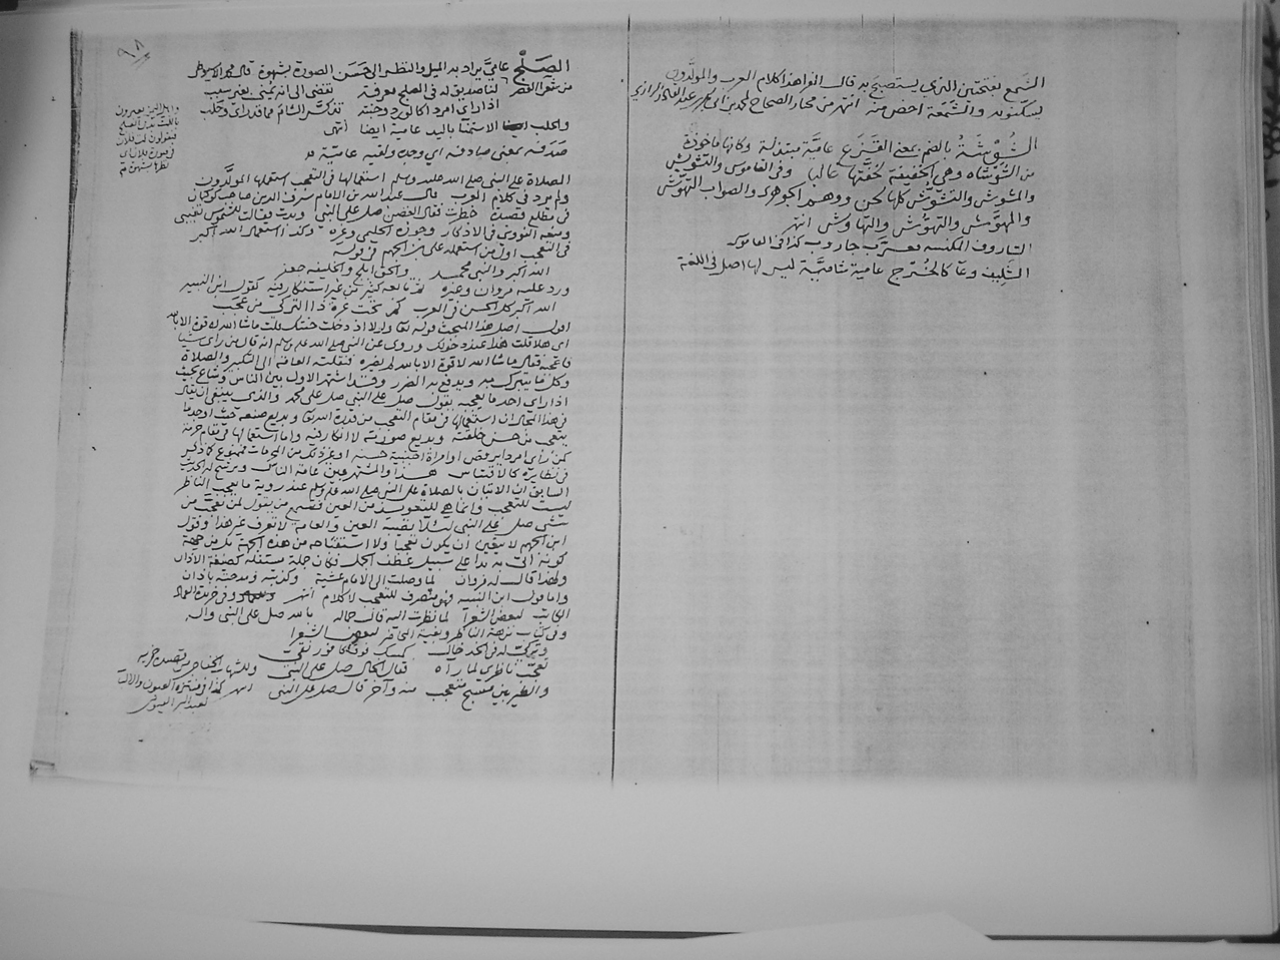 الشمع بفتحتين الذي يستصبح به قال الفرا هذا كلام العرب والمولدون
يسكنونه والشمعة اخص منه انتهى من مختار الصحاح لمحمد بن ابي بكر بن عبد القادر الرازي
الشُّوشَة بالضم بمعنى القَزَع عاميّة مبتذلة وكانها ماخوذة
من الشوشاه وهي الخفيفة لخفتها غالبا وفى القاموس والتشويش
والمشوش والتشوش كلها لحن ووهم الجوهري والصواب التهويش
والمهوش والتهوش والتهاوش انتهى
الشاروف المكنسه معرّب جاروب كذا فى القاموس
الشليف وعآ كالخرج عامية شاميّة ليس لها اصل فى اللغة
٦٨
الصَلْج عاميّ يراد به الميل والنظر الى حسن الصورة بشهوة قال محمد الاسيوطى
من شعرا العصر لنا صديق له فى الصلج معرفة تفضى الى انه يُمنى بغير سبب
اذا راى امرد اكالورد وجنته تذكر الشام مما قد راى وحلب
والحلب الاستمنا باليد عامية ايضا انتهى
صَدَفه بمعنى صادفه اي وجده ولقيه عاميّة
الصلاة على النبي صلى الله عليه وسلم استعمالها فى التعجب استعملها المولّدون
ولم يرد فى كلام العرب قال عبد الله بن الامام شرف الدين صاحب كوكبان
فى مطلع قصيدة خطرت فقال الغصن صل على النبي وبدت فقالت للشموس تغيبى
ومنعه النووي فى الاذكار وجوزه الحليمي وغيره وكذا استعمال الله اكبر
فى التعجب اول من استعمله على بن الجهم فى قوله
الله اكبر والنبي محمد والحق ابلج والخليفة جعفر
ورد عليه مروان وغيره ثم تابعه كثير من غير استنكار فيه كقول ابن النبيه
الله اكبر كل الحسن فى العرب كم تحت غرة ذا التركى من عجب
اقول اصل هذا المبحث قوله تعا ولولا اذ دخلت جنتك قلت ماشا الله لا قوة الا بالله
اى هلا قلت هذا عند دخولك وروى عن النبي صلى الله عليه وسلم انه قال من راى شيا
فاعجبه فقال ماشا الله لا قوة الا بالله لم يضره فنقلته العامة الى التكبير والصلاة
وكل ما يتبرك به ويدفع به الضرر وقد اشتهر الاول بين الناس وشاع بحيث
اذا راى احد ما يعجبه يقول صل على النبي صل على محمد والذي ينبغى ان يقال
فى هذا المجال ان استعمالها فى مقام التعجب من قدرة الله تعا وبديع صنعه حيث اوجد ما
يتعجب من حسن خلقته وبديع صورته لا انكار فيه واما استعمالها فى مقام حرمة
كمن راى امردا يرقص او امراة اجنبية حسنه او غير ذلك من المحرمات فممنوع كما ذكر
فى نظايره كالاقتباس هذا والمشتهر بين عامة الناس ويرشح له الحديث
السابق ان الاتيان بالصلاة على النبي صلى الله عليه وسلم عند روية ما يعجب الناظر
ليست للتعجب وانما هي للتعويذ من العين فيصح من يقول لمن تعجب من
شى صل على النبي ليلا يصيبه العين والعامة لا تعرف غير هذا وقول
ابن الجهم لا يتعين ان يكون تعجبا ولا استقباحه من هذه الجهة بل من جهة
كونه اتى به بدا على سبيل عطف الجمل فكان جملة مستقلة كصفة الاذان
ولهذا قال له مروان لما وصلت الى الامام عشية وكذبته ومدحته باذان
واما قول ابن النبيه فهو منصرف للتعجب لا كلام انتهى وفى خريدة العماد
الكاتب لبعض الشعرآ لما نظرت اليه قال جماله بالله صل على النبي واله
وفى كتاب نزهة الناظر وبغية الخاطر لبعض الشعرا
تعجب ناظري لما رآه فقال الخال صل على النبي
والطير بين مسبح متعجب منه وآخر قال صل على النبي